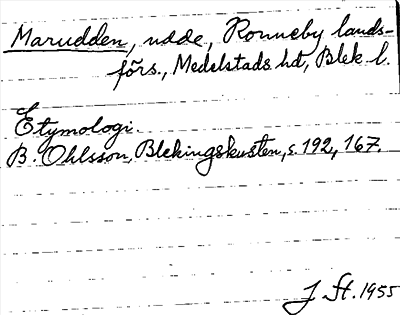 Marudden, udde, Ronneby lands-
förs., Medelstads hd, Blek l.
Etymologi.
B. Ohlsson, Blekingskusten, s. 192, 167.
J St. 1955